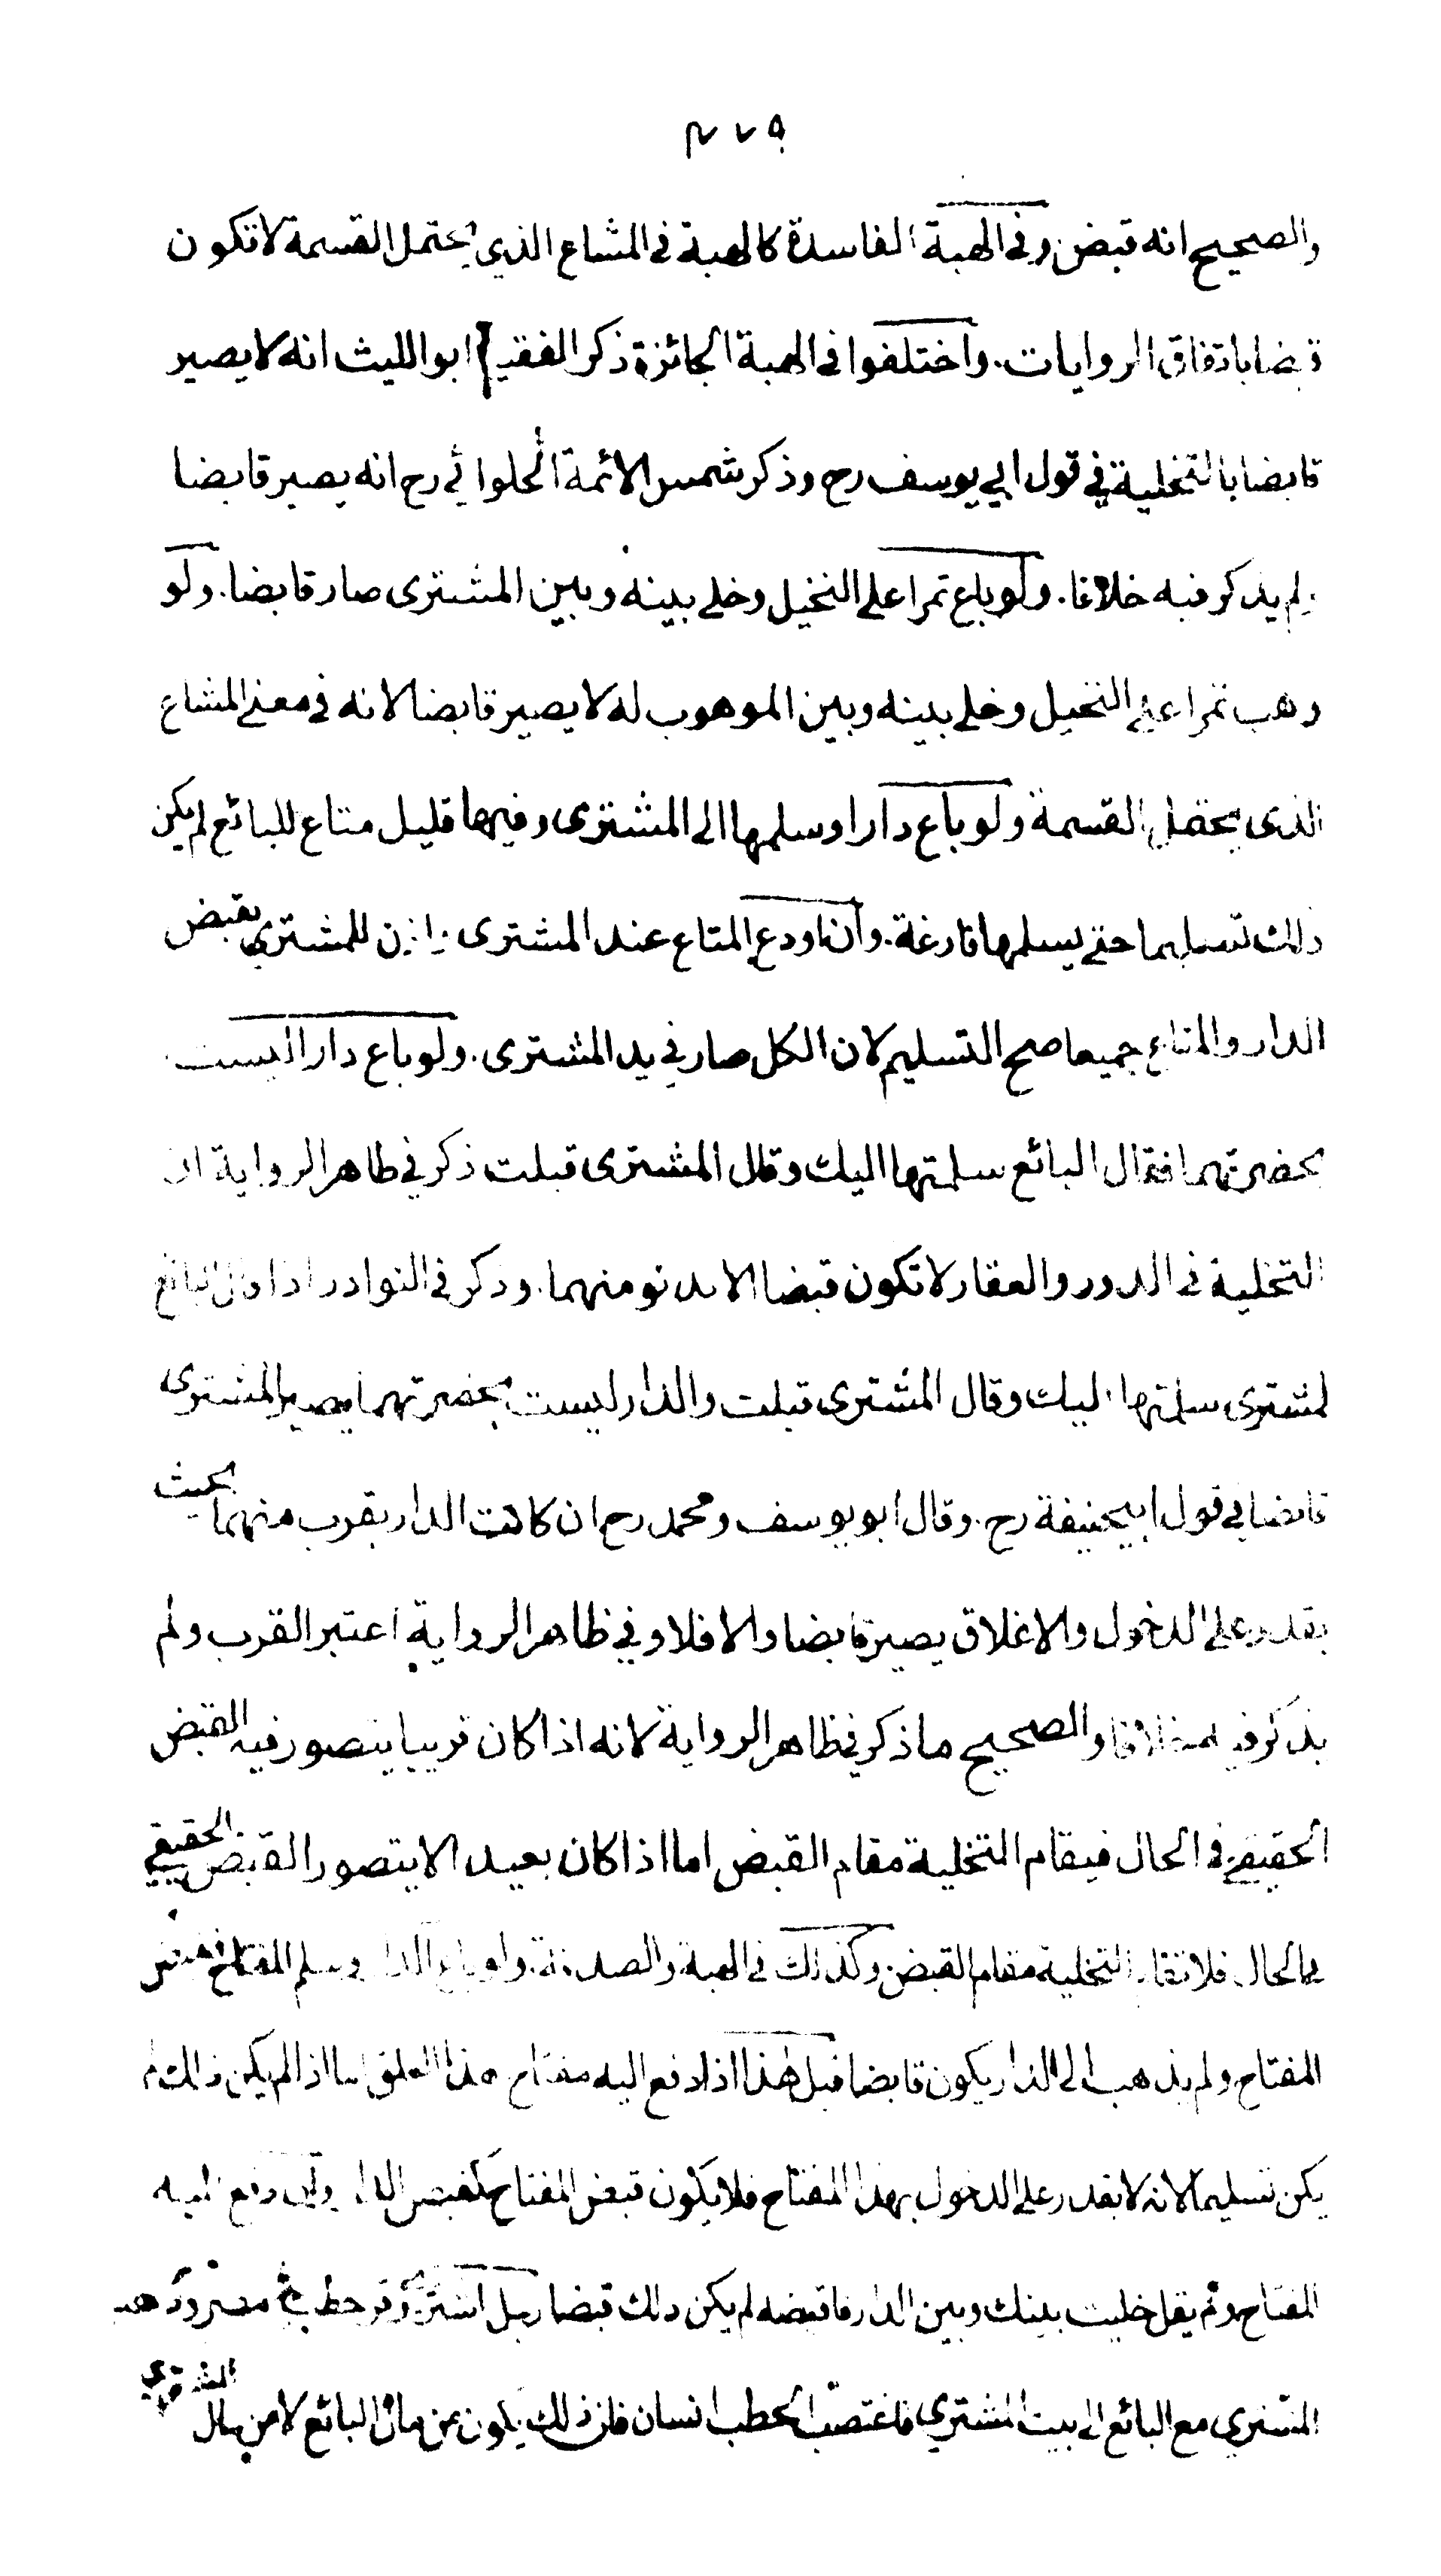 ٣٧٩
والصحيح انه قبض وفى الهبة الفاسدة كالهبة فى المشاع الذي يحتمل القسمة لا تكون
قبضا باتفاق الروايات. واختلفوا فى الهبة الجائزة ذكر الفقيه ابو الليث انه لا يصير
قابضا بالتخلية في قول ابي يوسف رح وذكر شمس الائمة الحلوائي رح انه يصير قابضا
ولم يذكر فيه خلافا. ولو باع تمرا على النخيل وخلى بينه وبين المشترى صار قابضا. ولو
وهب تمرا على النخيل وخلى بينه وبين الموهوب له لا يصير قابضا لانه فى معنى المشاع
الذى يحتمل القسمة ولو باع دارا وسلمها الى المشترى وفيها قليل متاع للبائع لم يكن
ذلك تسليما حتى يسلمها فارغة. وان اودع المتاع عند المشترى واذن للمشتري بقبض
الدار والمتاع جميعا صح التسليم لان الكل صار في يد المشترى. ولو باع دارا ليست
بحضرتهما فقال البائع سلمتها اليك وقال المشترى قبلت ذكر في ظاهر الرواية ان
التخلية فى الدور والعقار لا تكون قبضا الا بدنو منهما. وذكر فى النوادر اذا قال البائع
لمشترى سلمتها اليك وقال المشترى قبلت والدار ليست بحضرتهما يصير المشترى
قابضا في قول ابيحنيفة رح. وقال ابو يوسف ومحمد رح ان كانت الدار بقرب منهما بحيث
يقدر على الدخول والاغلاق يصير قابضا والا فلا وفي ظاهر الرواية اعتبر القرب ولم
يذكر فيه خلافا والصحيح ما ذكر في ظاهر الرواية لانه اذا كان قريبا يتصور فيه القبض
الحقيقي فى الحال فيقام التخلية مقام القبض اما اذا كان بعيدا لا يتصور القبض الحقيقي
في الحال فلا تقام التخلية مقام القبض وكذلك فى الهبة والصدقة. ولو باع الدار وسلم المفتاح فقبض
المفتاح ولم يذهب الى الدار يكون قابضا قيل هذا اذا دفع اليه مفتاح هذا الغلق اما اذا لم يكن ذلك لم
يكن تسليما لانه لا يقدر على الدخول بهذا المفتاح فلا يكون قبض المفتاح كقبض الدار وان دفع اليه
المفتاح ولم يقل خليت بينك وبين الدار فاقبضه لم يكن ذلك قبضا رجل اشترى وقر حطب في مصر وذهب
المشتري مع البائع الى بيت المشتري فاغتصب الحطب انسان فان ذلك يكون من مال البائع لا من مال المشتري